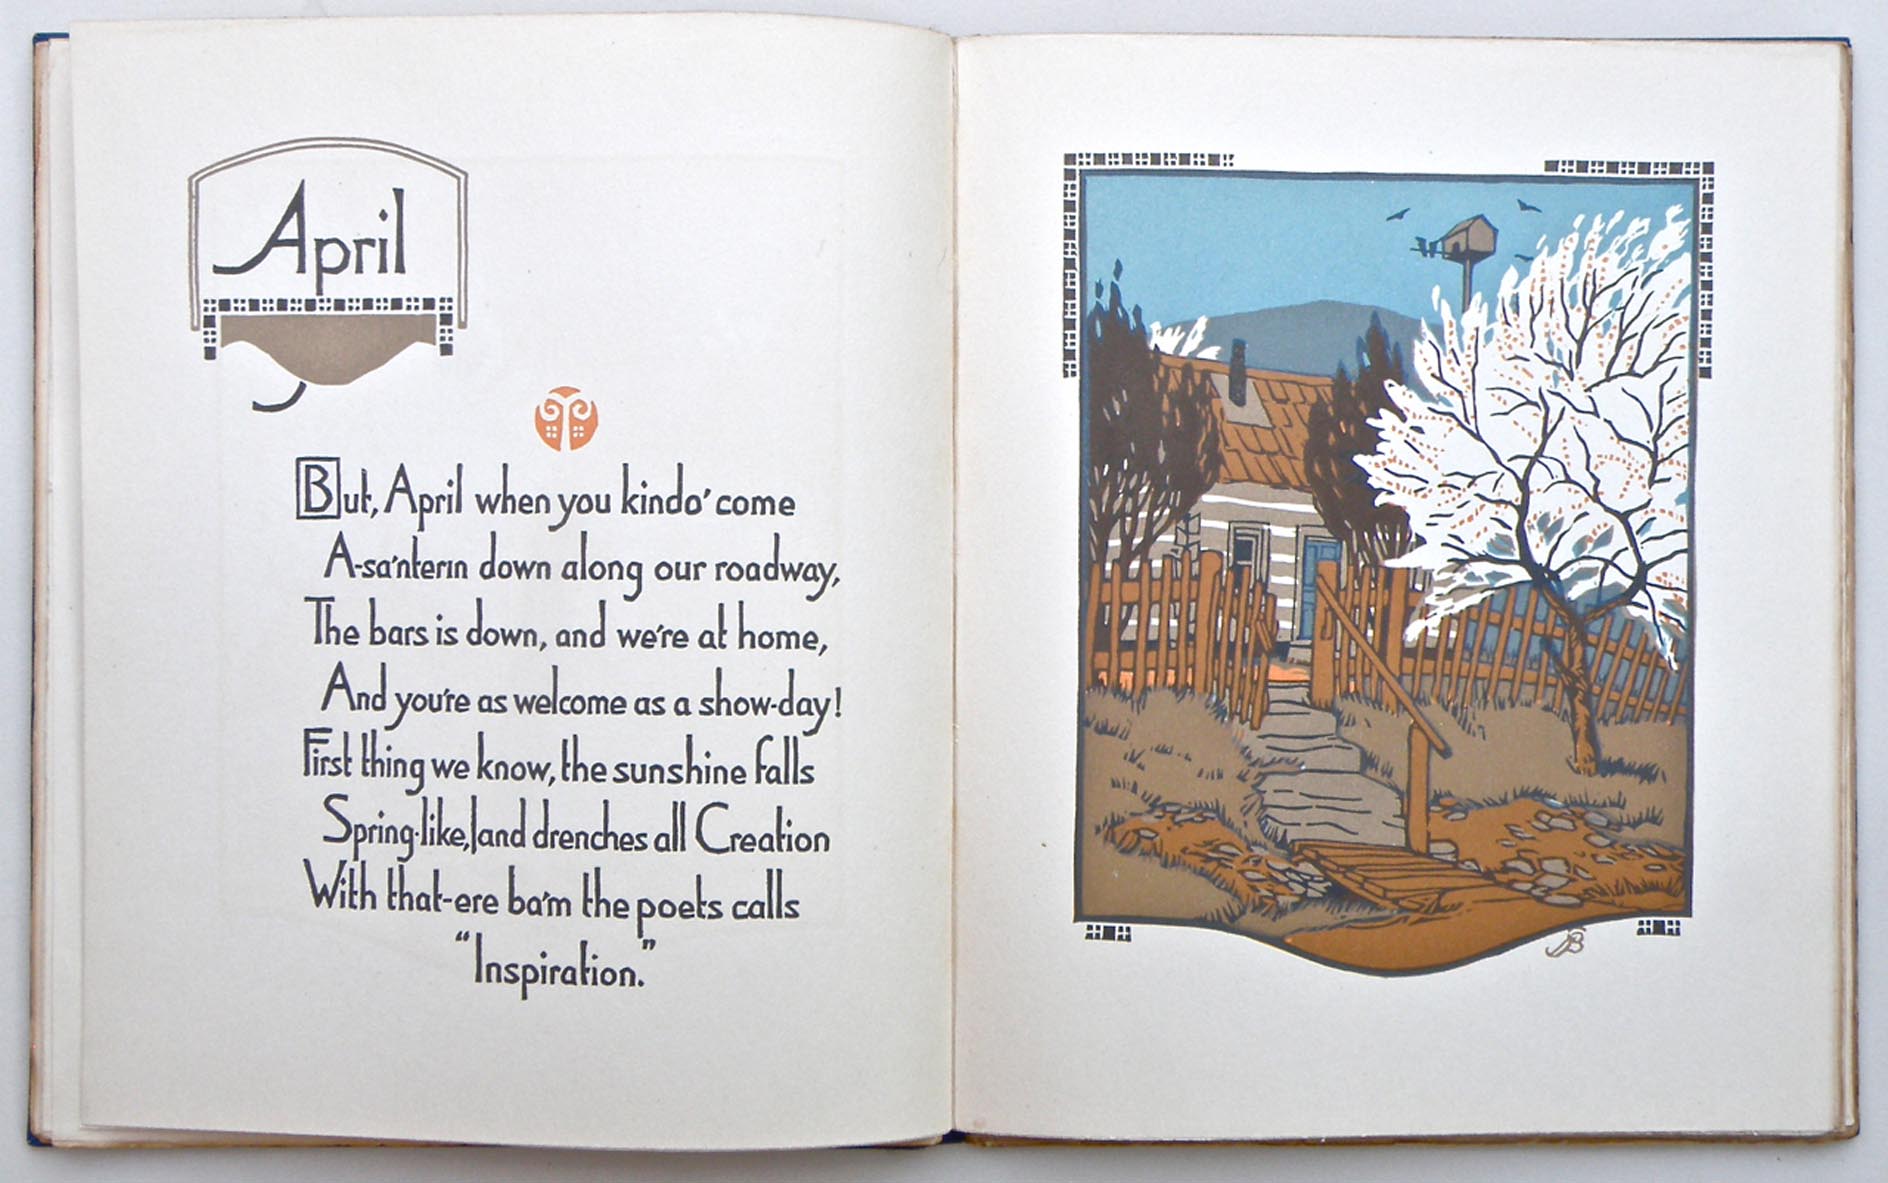 April
But, April when you kindo' come
A-sa'nterin down along our roadway,
The bars is down, and we're at home,
And you're as welcome as a show-day!
First thing we know, the sunshine falls
Spring-like, and drenches all Creation
With that-ere ba'm the poets calls
"Inspiration."
JB